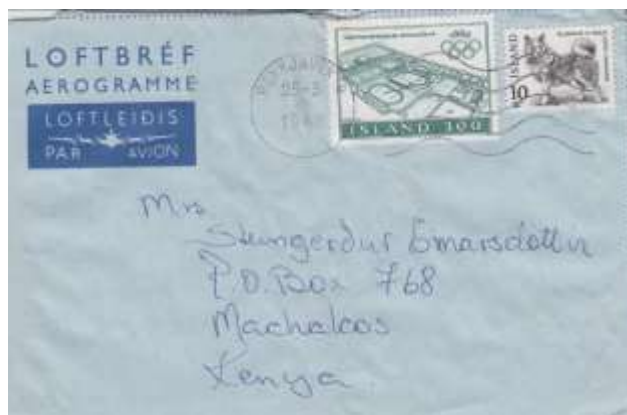 LOFTBRÉF
AEROGRAMME
LOFTLEIÐIS
PAR AVION
REYKJAVÍK
ÍSLAND 300
ÍSLAND
10
Mrs
Steingerdur Emarsdottir
P.O. Box 768
Machakos
Kenya